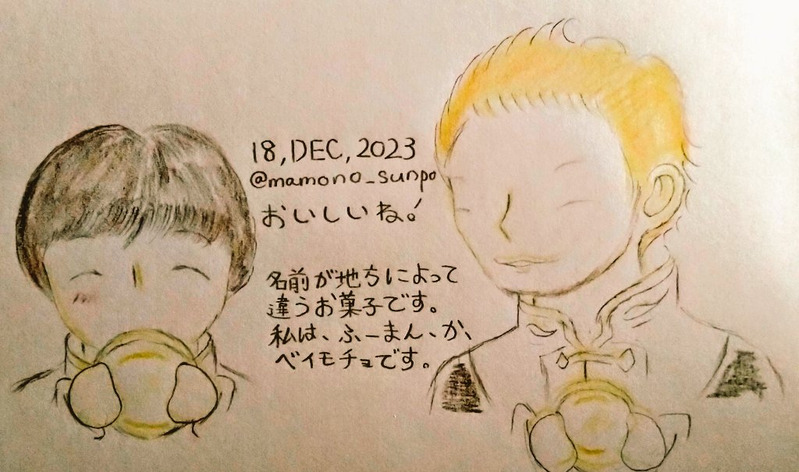 18, DEC, 2023
@mamono_sunpo
おいしいね!
名前が地方によって
違うお菓子です。
私は、ふーまん、か、
ベイモチョです。